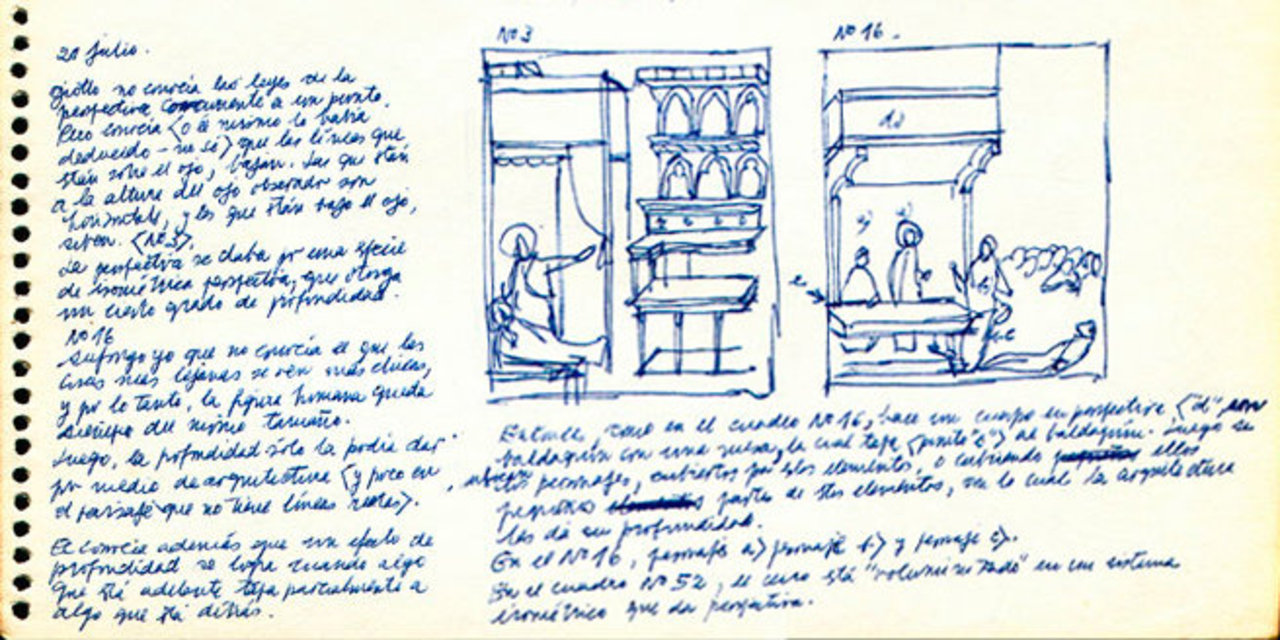 20 Julio.
giotto no conocía las leyes de la
perspectiva concurrente a un punto.
Pero conocía (o él mismo lo había
deducido - no sé) que las líneas que
están sobre el ojo, bajan. Las que están
a la altura del ojo observador son
horizontales, y las que están bajo el ojo,
suben. (Nº3).
La perspectiva se daba por una especie
de isométrica perspectiva, que otorga
un cierto grado de profundidad.
Nº16
Supongo yo que no conocía el que las
cosas más lejanas se ven más chicas,
y por lo tanto, la figura humana queda
siempre del mismo tamaño.
Luego, la profundidad sólo la podía dar
por medio de arquitectura (y poco en
el paisaje que no tiene líneas rectas).
El conocía además que un efecto de
profundidad se logra cuando algo
que está adelante tapa parcialmente a
algo que está detrás.
Nº3
Nº16.
d)
b)
a)
e
c
Entonces, como en el cuadro Nº16, hace un cuerpo en perspectiva ("d"
baldaquín con una mesa, la cual tapa (punto "e") al baldaquín. Luego se
los personajes, cubiertos por estos elementos, o cubriendo ellos
pequeñas partes de estos elementos, con lo cual la arquitectura
les da su profundidad.
En el Nº16, personaje a) personaje b.) y personaje c).
En el cuadro Nº52, el cerro está "volumin" en un sistema
isométrico que da perspectiva.